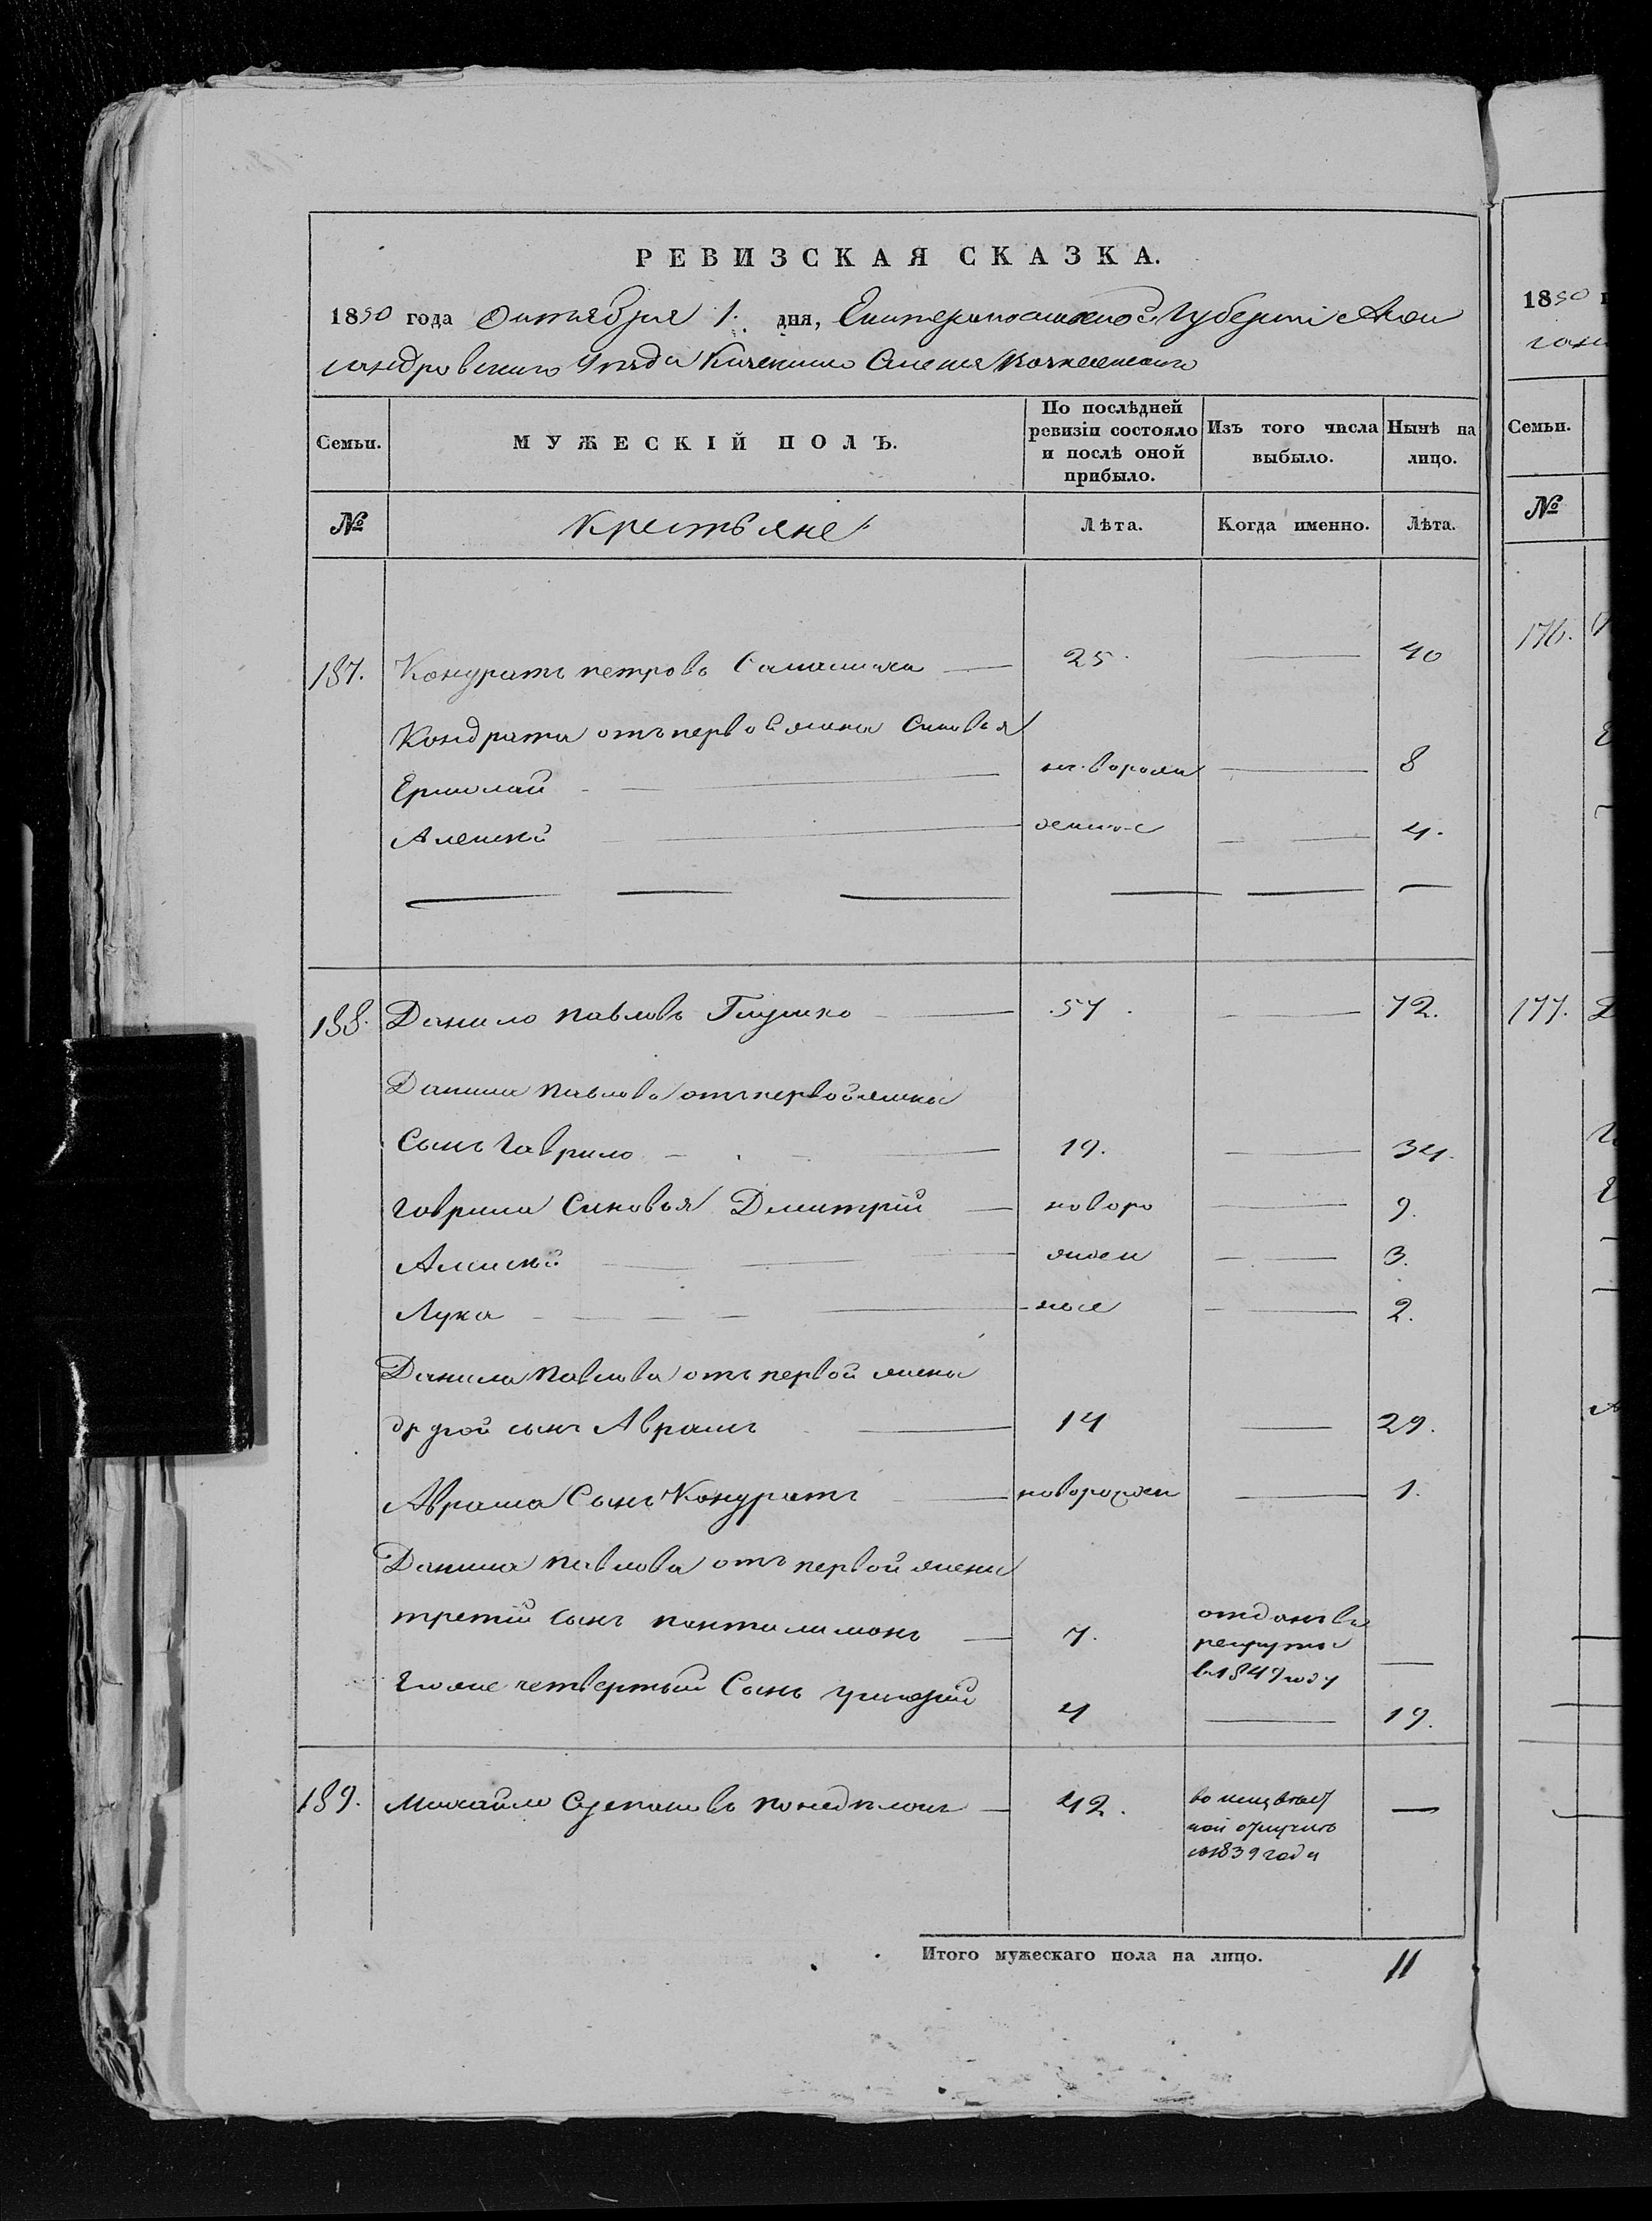 РЕВИЗСКАЯ СКАЗКА.
1850 года Октября 1. дня, Екатеринославской Губерніи Алек
сандровскаго Уезда
Семьи.
МУЖЕСКІЙ ПОЛЪ.
По послѣдней ревизіи состояло и послѣ оной прибыло.
Изъ того числа выбыло.
Нынѣ на лицо.
№
Крестьяне
Лѣта.
Когда именно.
Лѣта.
187. Кондратъ петровъ 25. 40
Кондрата отъ первой жены Сыновья
Ермолай новорож 8
Алексей денные 4.
188. Данило павловъ Глушко 57. 72.
Данила Павлова отъ первой жены
Сынъ Гаврило 19. 34.
Гаврила Сыновья Дмитрій новоро 9.
Алексей жден 3.
Лука ные 2.
Данила Павлова отъ первой жены
другой сынъ Аврамъ 14 29.
Аврама Сынъ Кондратъ новорожден 1.
Данила павлова отъ первой жены
третій сынъ пантилимонъ 7. отданъ въ рекруты в 1847 году
Его же четвертый Сынъ григорій 4 19.
189. Михайло Степановъ 42. 1839 года
Итого мужескаго пола на лицо. 11
1850
Семьи.
№
176.
177.